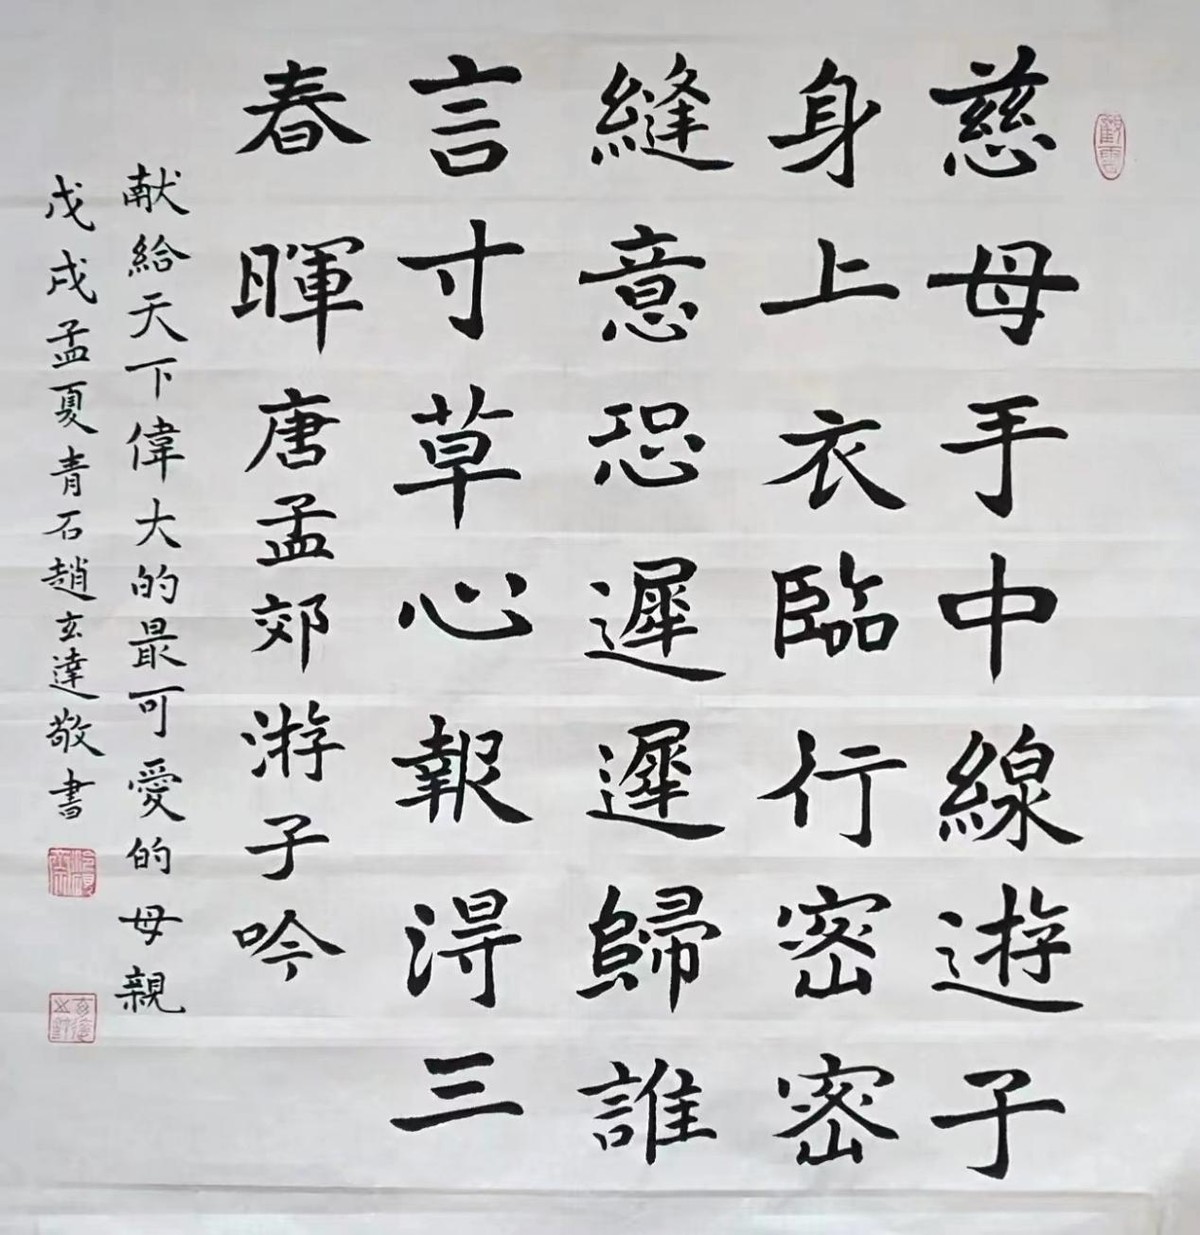 慈母手中線遊子
身上衣臨行密密
縫意恐遲遲歸誰
言寸草心報淂三
春暉唐孟郊游子吟
献給天下偉大的最可愛的母親
戊戌孟夏青石趙玄達敬書